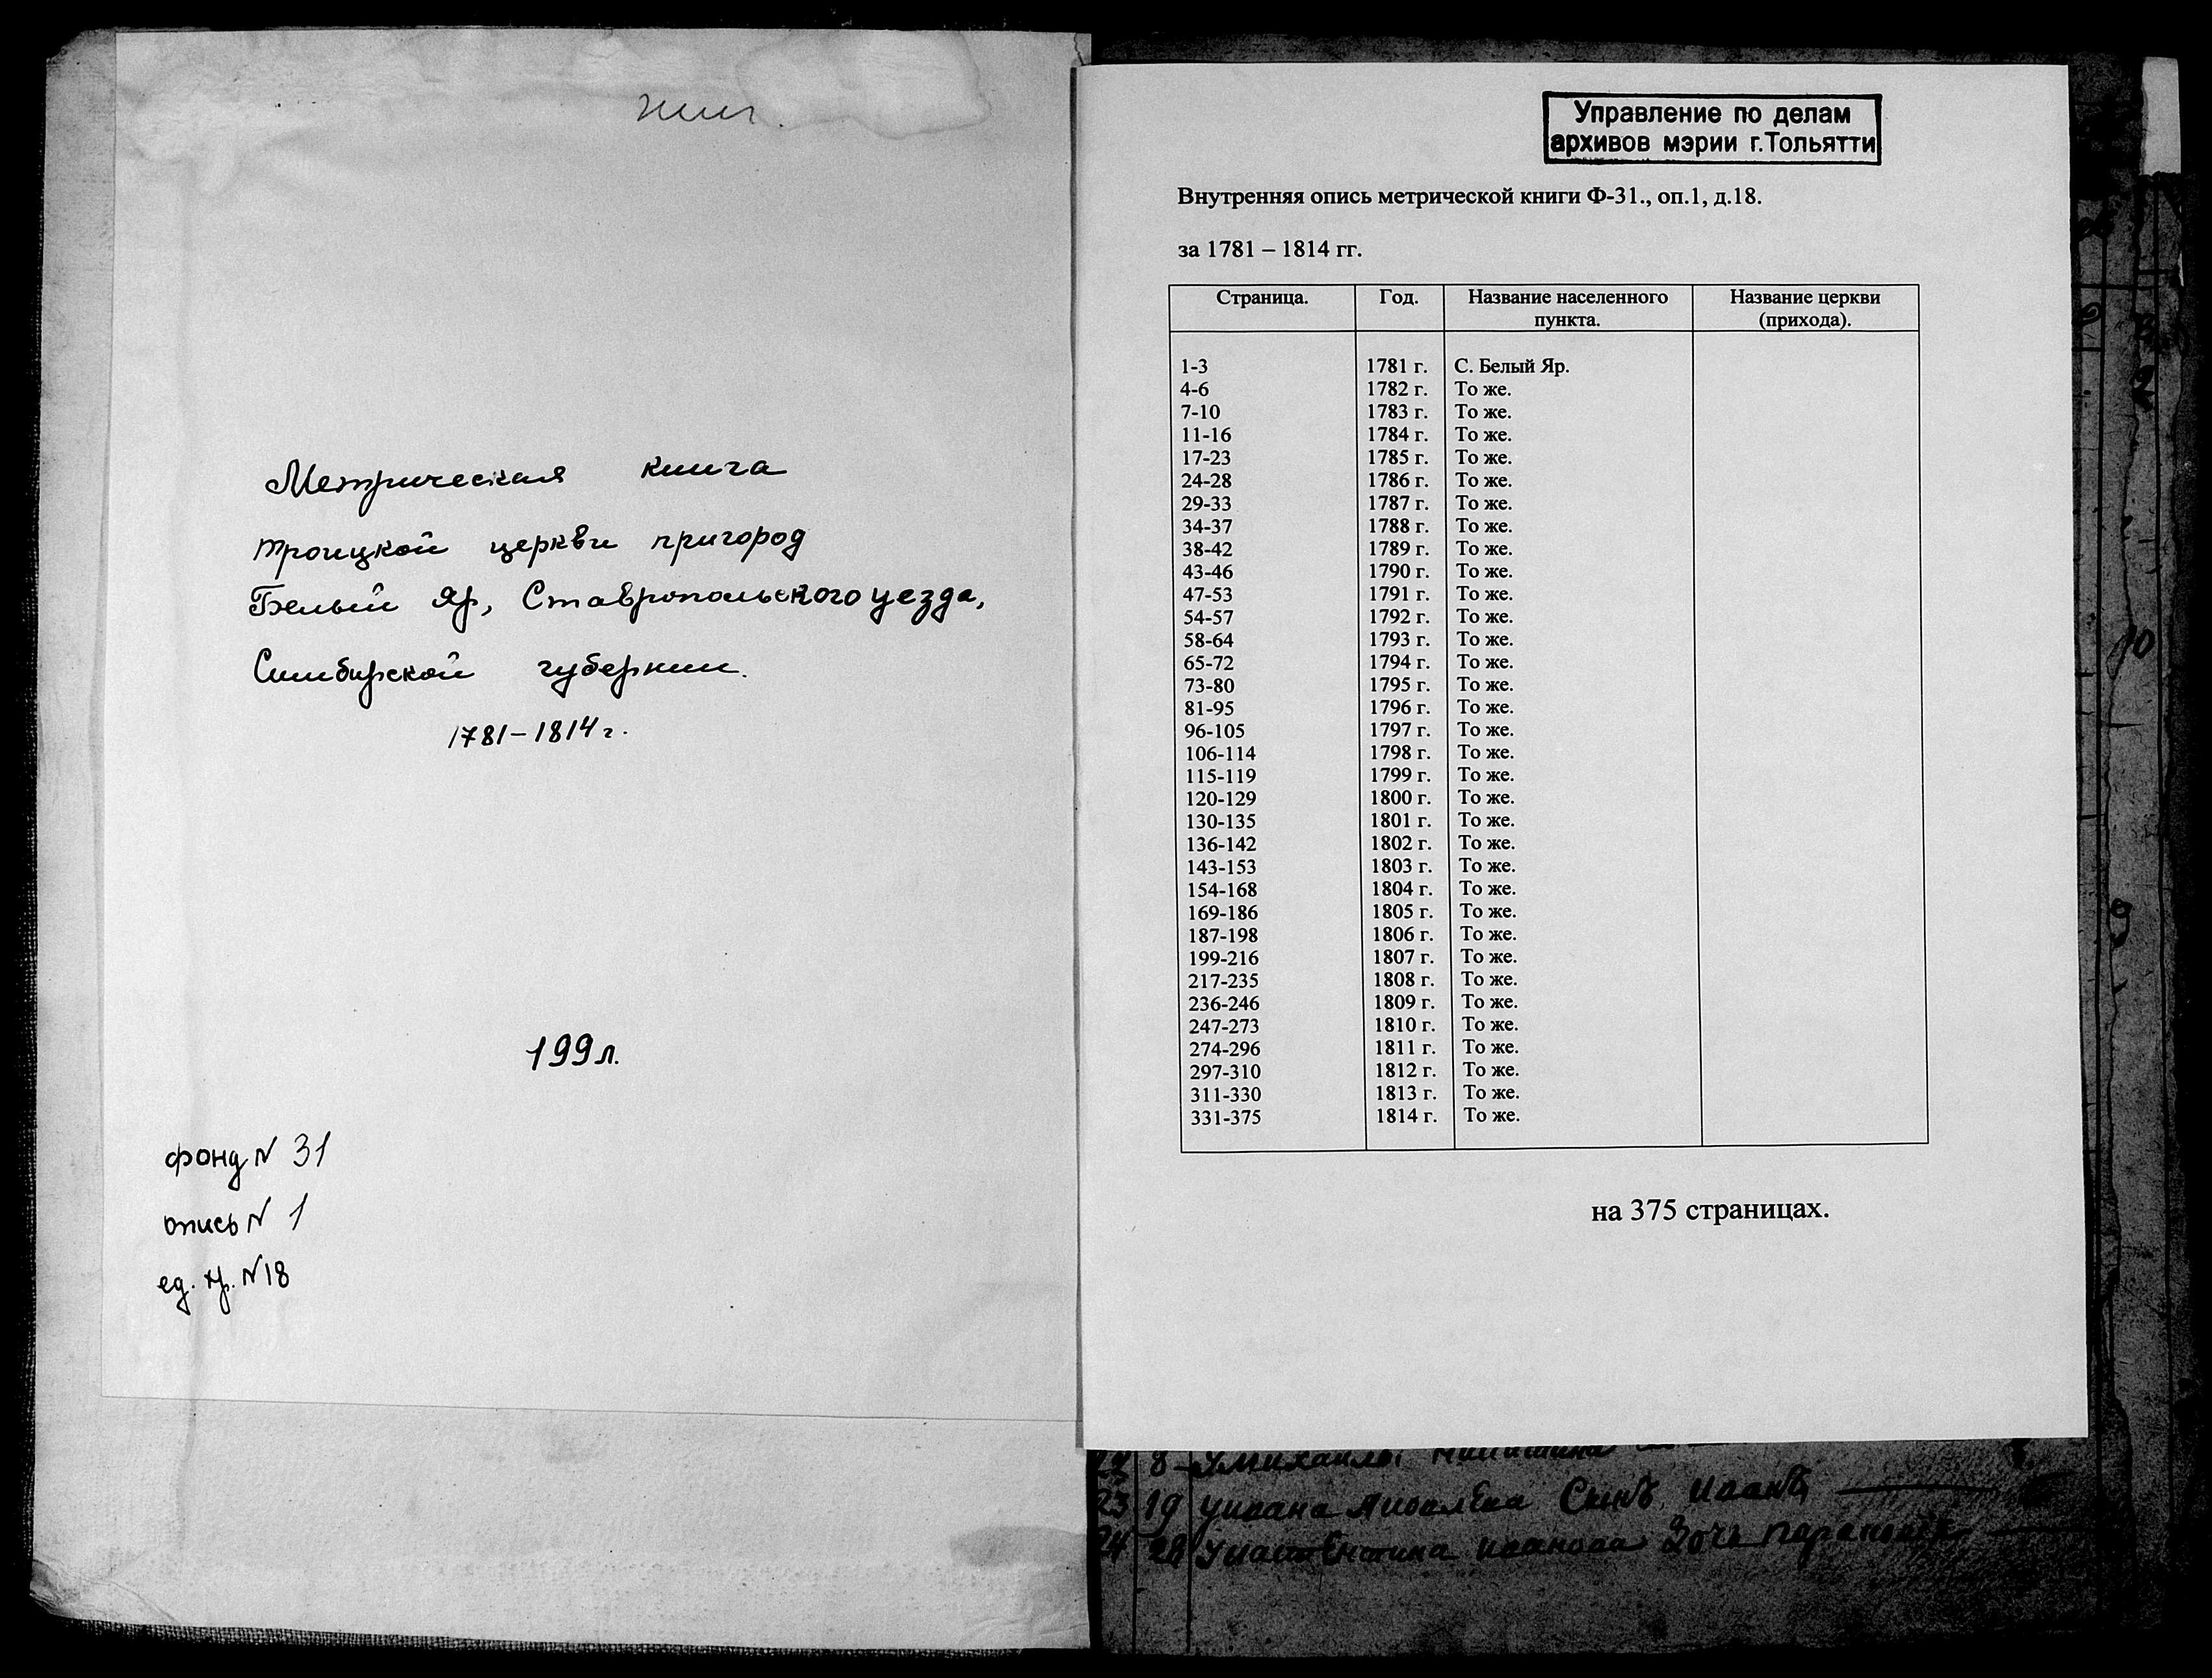 Метрическая книга
троицкой церкви пригород
Белый Яр, Ставропольского уезда,
Симбирской губернии.
1781-1814г.
199л.
фонд N 31
опись N 1
ед. хр. N18
Управление по делам
архивов мэрии г.Тольятти
Внутренняя опись метрической книги Ф-31., оп.1, д.18.
за 1781 – 1814 гг.
Страница. Год. Название населенного пункта. Название церкви (прихода).
1-3 1781 г. С. Белый Яр.
4-6 1782 г. То же.
7-10 1783 г. То же.
11-16 1784 г. То же.
17-23 1785 г. То же.
24-28 1786 г. То же.
29-33 1787 г. То же.
34-37 1788 г. То же.
38-42 1789 г. То же.
43-46 1790 г. То же.
47-53 1791 г. То же.
54-57 1792 г. То же.
58-64 1793 г. То же.
65-72 1794 г. То же.
73-80 1795 г. То же.
81-95 1796 г. То же.
96-105 1797 г. То же.
106-114 1798 г. То же.
115-119 1799 г. То же.
120-129 1800 г. То же.
130-135 1801 г. То же.
136-142 1802 г. То же.
143-153 1803 г. То же.
154-168 1804 г. То же.
169-186 1805 г. То же.
187-198 1806 г. То же.
199-216 1807 г. То же.
217-235 1808 г. То же.
236-246 1809 г. То же.
247-273 1810 г. То же.
274-296 1811 г. То же.
297-310 1812 г. То же.
311-330 1813 г. То же.
331-375 1814 г. То же.
на 375 страницах.
23 19 Сынъ
24 28 иванова